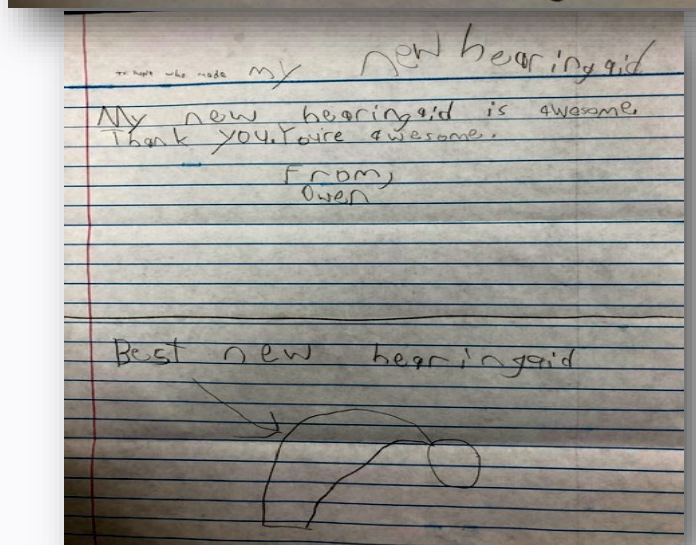 to people who made my new hearing aid
My new hearing aid is awesome.
Thank you. You're awesome.
From,
Owen
Best new hearingaid